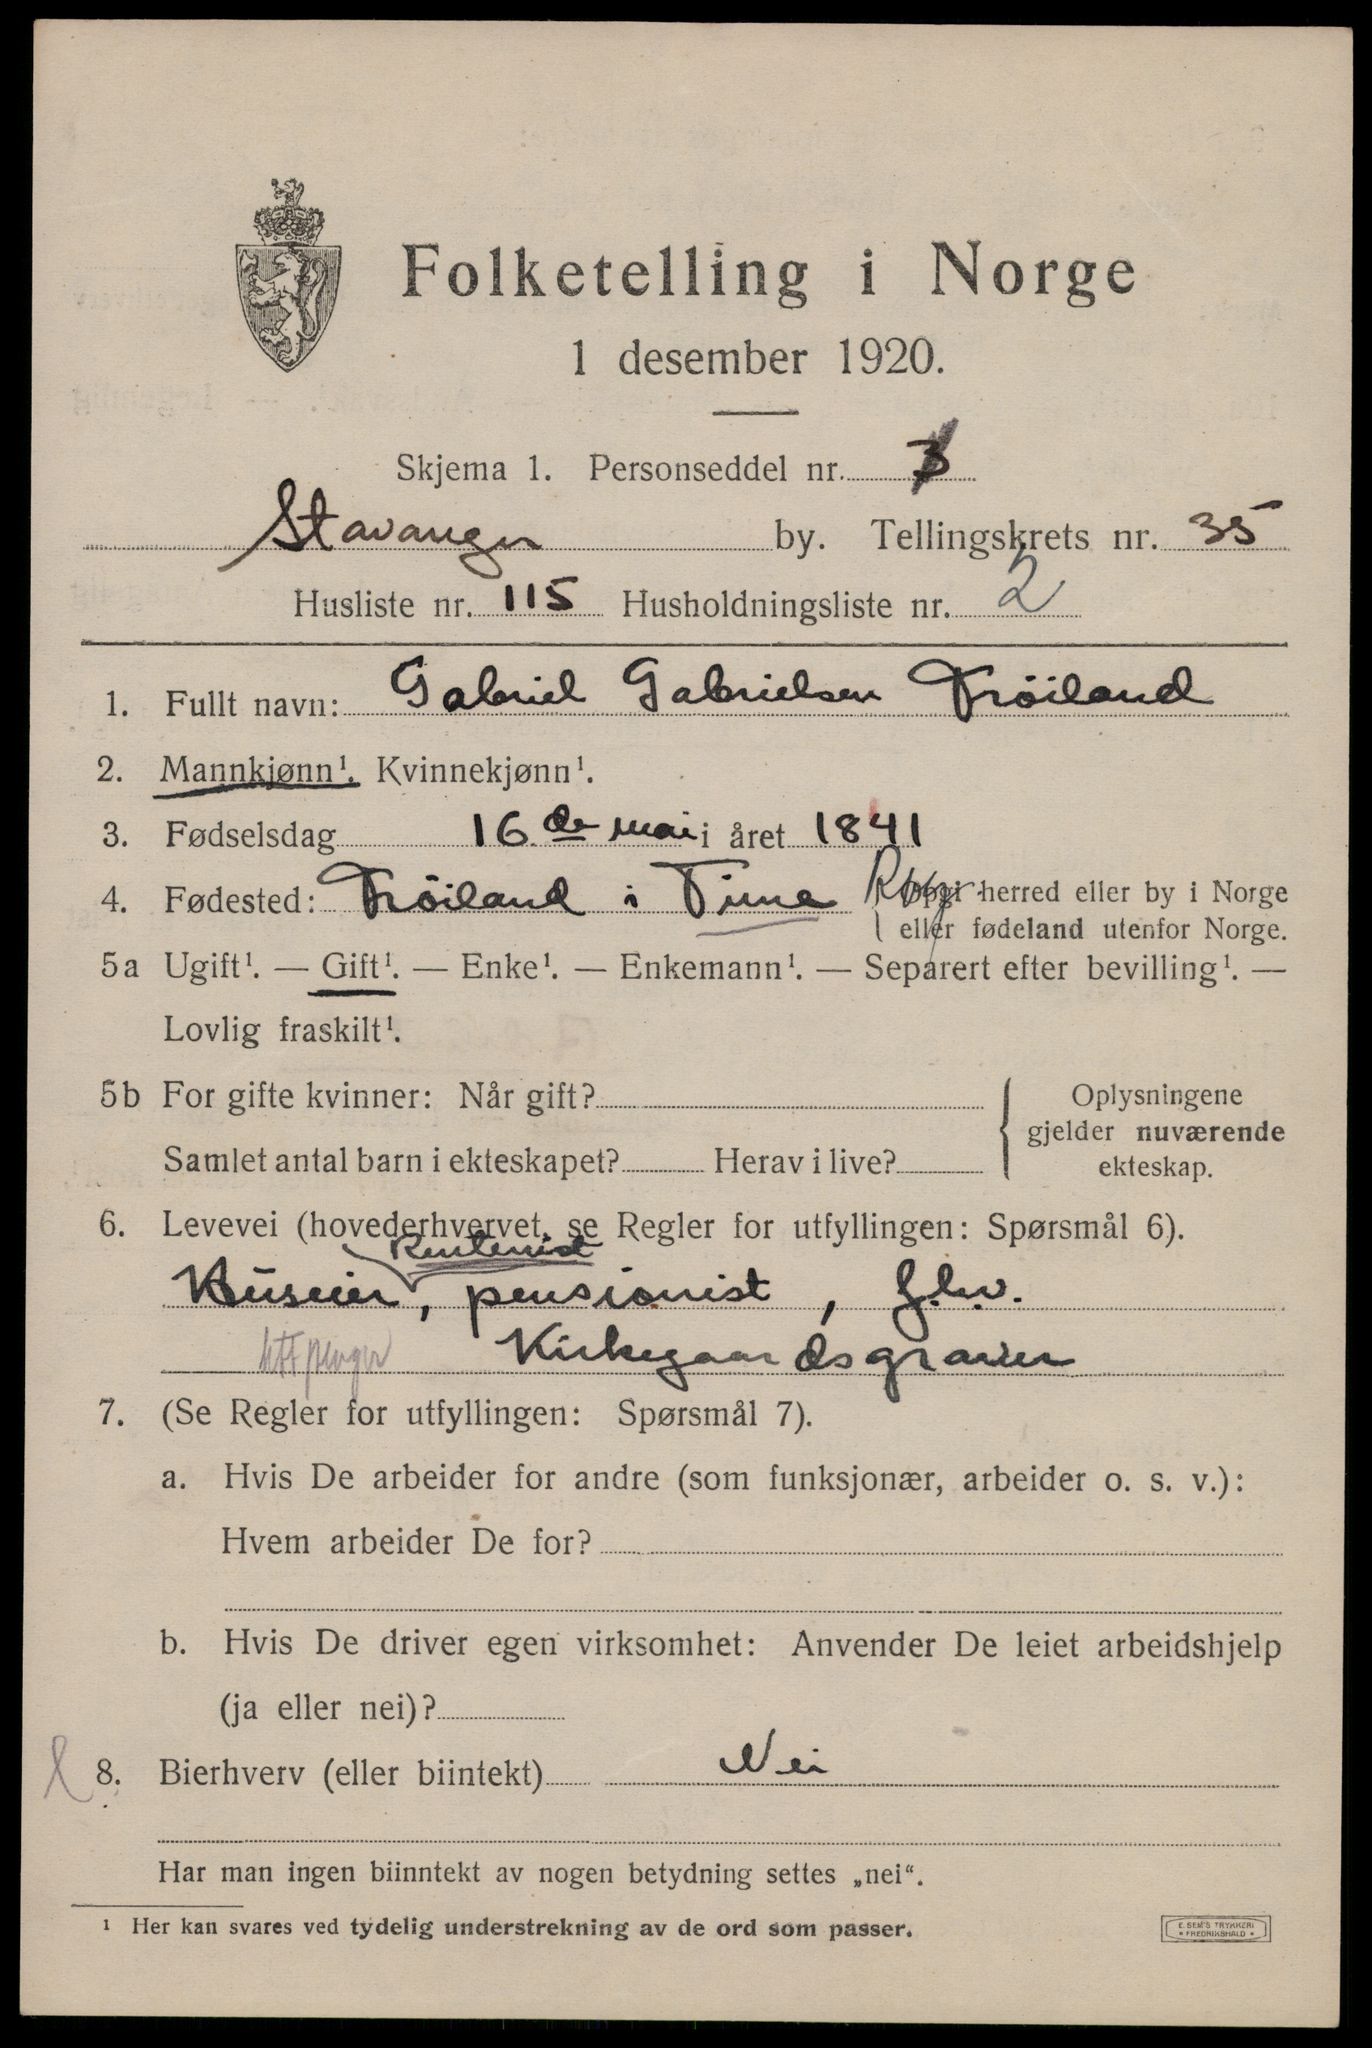 Folketelling i Norge
1 desember 1920.
Skjema 1. Personseddel nr.
Stavanger by. Tellingskrets nr. 35
Husliste nr. 115 Husholdningsliste nr. 2
1. Fullt navn: Gabriel Gabrielsen Tröiland
2. Mannkjønn¹. Kvinnekjønn¹.
3. Fødselsdag 16de mai i året 1841
4. Fødested: Tröiland i Time Rog. { Opgi herred eller by i Norge
eller fødeland utenfor Norge.
5a Ugift¹. — Gift¹. — Enke¹. — Enkemann¹. — Separert efter bevilling¹. —
Lovlig fraskilt¹.
5b For gifte kvinner: Når gift? { Oplysningene
gjelder nuværende
Samlet antal barn i ekteskapet? Herav i live?
ekteskap.
6. Levevei (hovederhvervet, se Regler for utfyllingen: Spørsmål 6).
Rentenist
Huseier, pensionist, f.h.v.
Kirkegaardsgraver
7. (Se Regler for utfyllingen: Spørsmål 7).
a. Hvis De arbeider for andre (som funksjonær, arbeider o. s. v.):
Hvem arbeider De for?
b. Hvis De driver egen virksomhet: Anvender De leiet arbeidshjelp
(ja eller nei)?
8. Bierhverv (eller biintekt) Nei
Har man ingen biinntekt av nogen betydning settes „nei“.
¹ Her kan svares ved tydelig understrekning av de ord som passer.
E. SEM'S TRYKKERI
* FREDRIKSHALD *